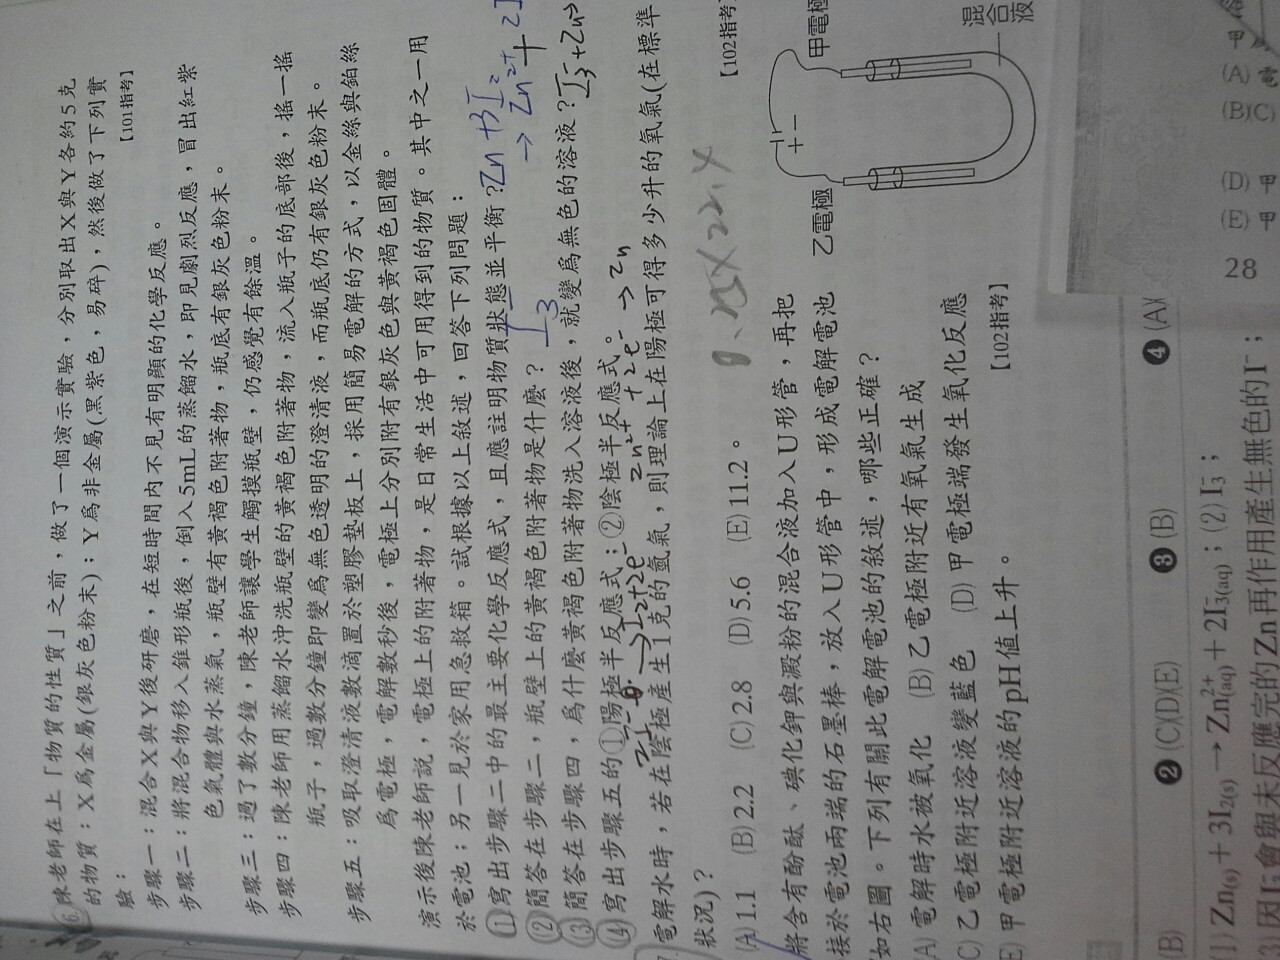 6. 陳老師在上「物質的性質」之前，做了一個演示實驗，分別取出X與Y各約5克
的物質：X爲金屬(銀灰色粉末)；Y爲非金屬(黑紫色，易碎)，然後做了下列實
驗：
【101指考】
步驟一：混合X與Y後研磨，在短時間內不見有明顯的化學反應。
步驟二：將混合物移入錐形瓶後，倒入5mL的蒸餾水，即見劇烈反應，冒出紅紫
色氣體與水蒸氣，瓶壁有黃褐色附著物，瓶底有銀灰色粉末。
步驟三：過了數分鐘，陳老師讓學生觸摸瓶壁，仍感覺有餘溫。
步驟四：陳老師用蒸餾水沖洗瓶壁的黃褐色附著物，流入瓶子的底部後，搖一搖
瓶子，過數分鐘即變爲無色透明的澄清液，而瓶底仍有銀灰色粉末。
步驟五：吸取澄清液數滴置於塑膠墊板上，採用簡易電解的方式，以金絲與鉑絲
爲電極，電解數秒後，電極上分別附有銀灰色與黃褐色固體。
演示後陳老師說，電極上的附著物，是日常生活中可用得到的物質。其中之一用
於電池；另一見於家用急救箱。試根據以上敘述，回答下列問題：
(1) 寫出步驟二中的最主要化學反應式，且應註明物質狀態並平衡？ Zn + 3I2
→ Zn2+ + 2I
(2) 簡答在步驟二，瓶壁上的黃褐色附著物是什麼？ I3-
(3) 簡答在步驟四，爲什麼黃褐色附著物洗入溶液後，就變爲無色的溶液？ I3- + Zn →
(4) 寫出步驟五的①陽極半反應式；②陰極半反應式。
2I- → I2+2e-
Zn2+ + 2e- → Zn
電解水時，若在陰極產生1克的氫氣，則理論上在陽極可得多少升的氧氣(在標準
狀況)？
【102指考】
(A) 1.1 (B) 2.2 (C) 2.8 (D) 5.6 (E) 11.2。
將含有酚酞、碘化鉀與澱粉的混合液加入U形管，再把
接於電池兩端的石墨棒，放入U形管中，形成電解電池
如右圖。下列有關此電解電池的敘述，哪些正確？
(A) 電解時水被氧化 (B) 乙電極附近有氧氣生成
(C) 乙電極附近溶液變藍色 (D) 甲電極端發生氧化反應
(E) 甲電極附近溶液的pH值上升。
【102指考】
乙電極
甲電極
+ −
混合液
(B) ❷ (C)(D)(E) ❸ (B) ❹ (A)(
(1) Zn(s) + 3I2(s) → Zn2+(aq) + 2I3-(aq)；(2) I3-；
(3) 因I3-會與未反應完的Zn再作用產生無色的I-；
甲
(A)
(B)(C)
(D) 甲
(E) 甲
28